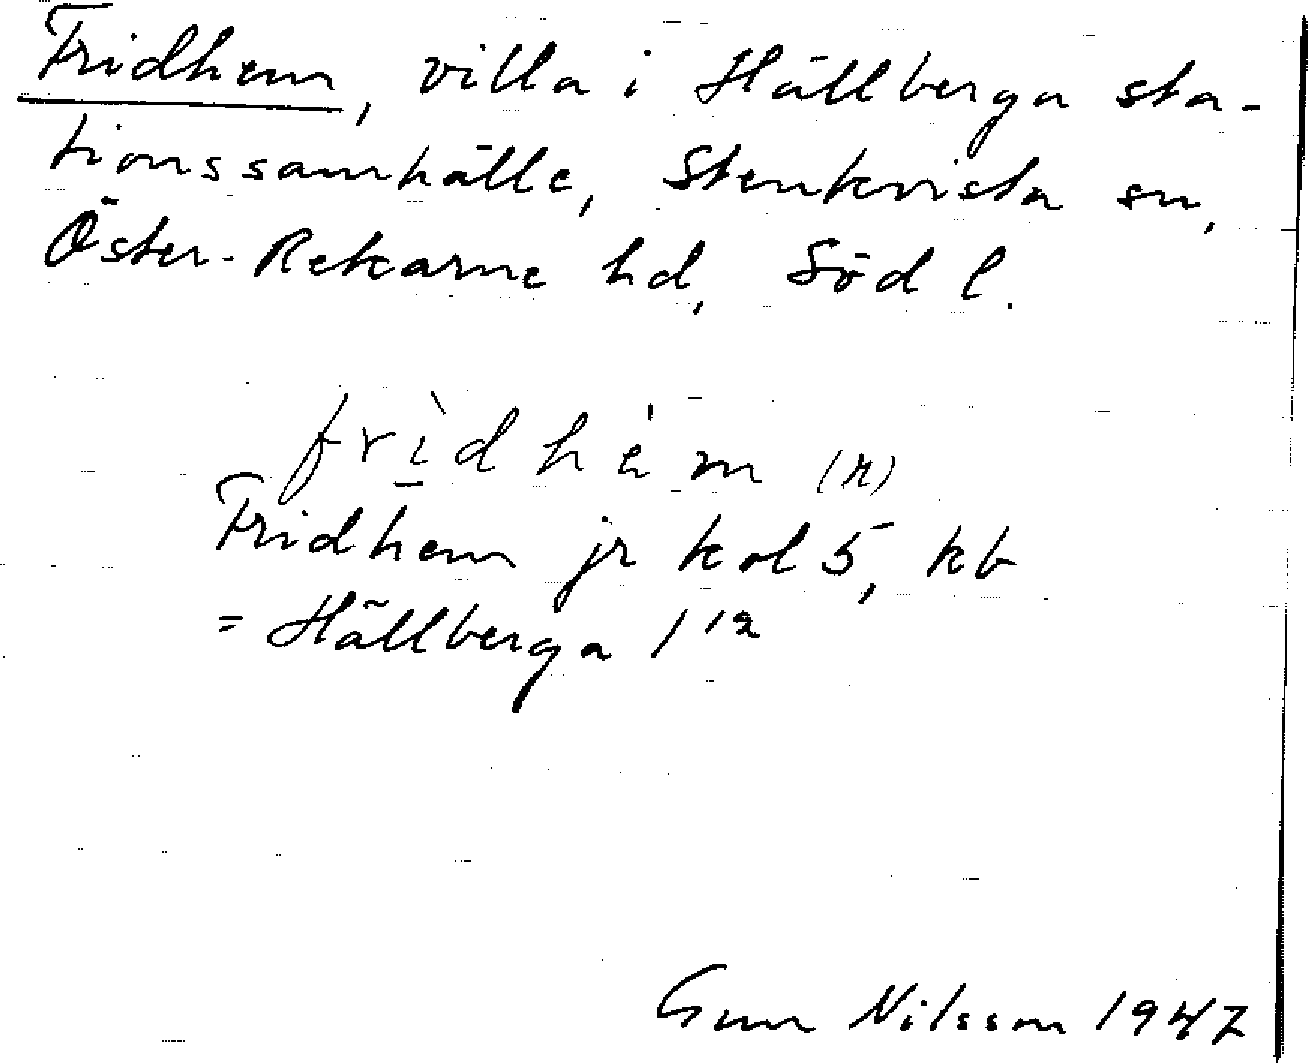 Fridhem, villa i Hällberga sta-
tionssamhälle, Stenkvista sn,
Öster-Rekarne hd, Söd l.
frì̲dhem (n)
Fridhem jr kol 5, kb
= Hällberga 1¹²
Gun Nilsson 1947